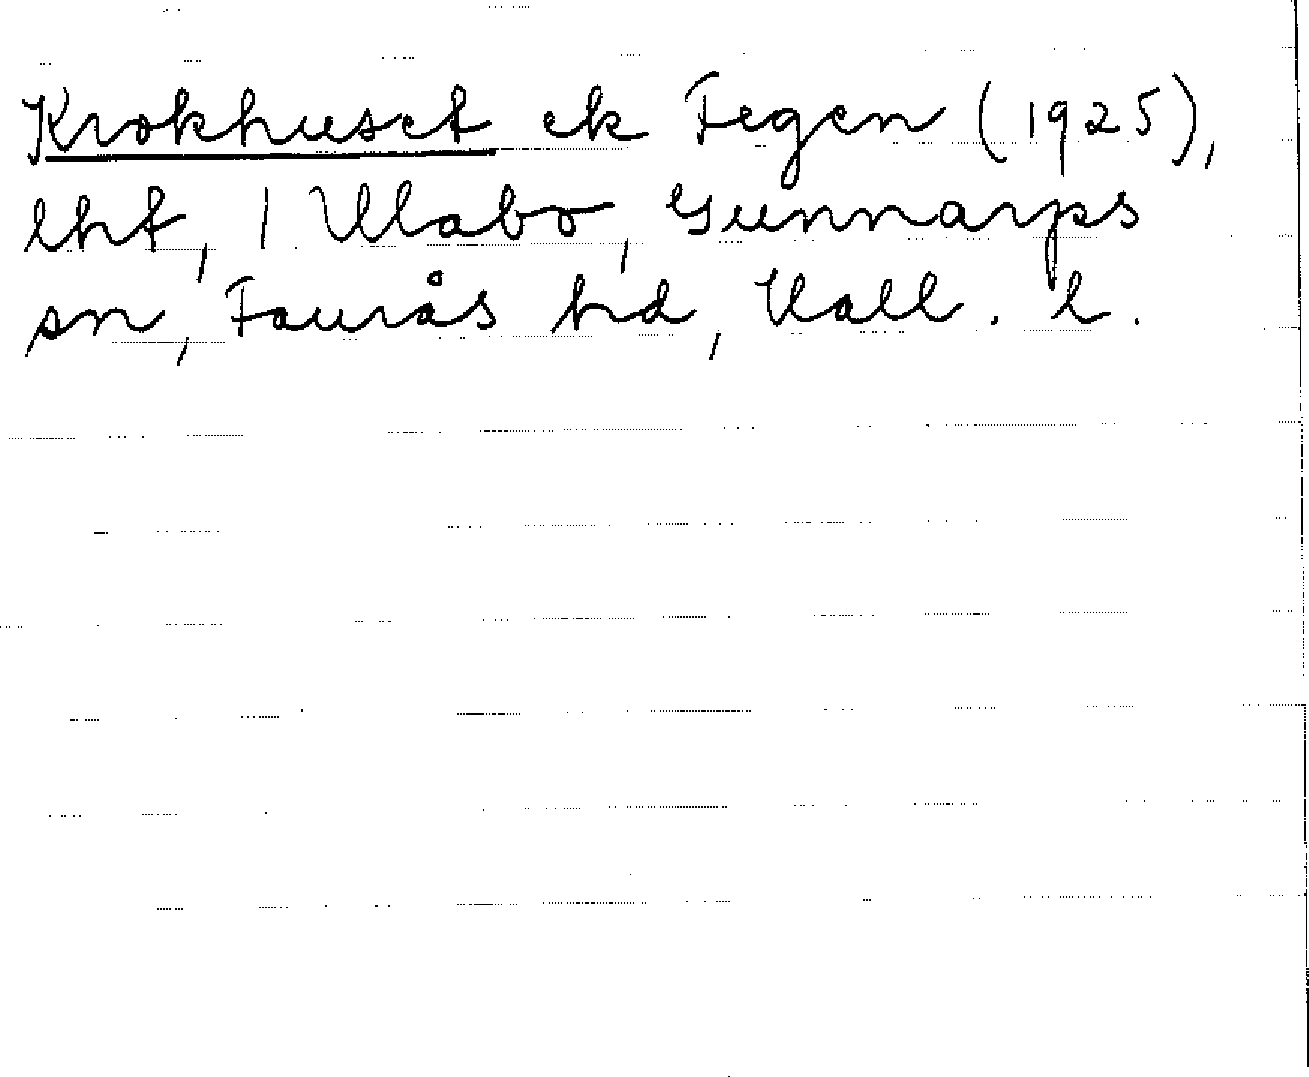 Krokhuset ek Fegen (1925),
lht, 1 Ulabo, Gunnarps
sn, Faurås hd, Hall. l.